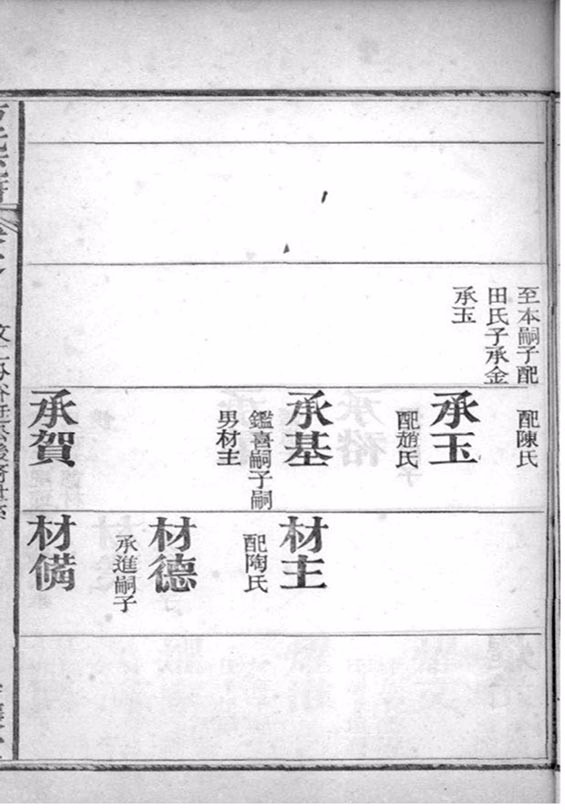 至本嗣子配
田氏子承金
承玉
配陳氏
承玉
配趙氏
承基
鑑喜嗣子嗣
男材主
承賀
材主
配陶氏
材德
承進嗣子
材備